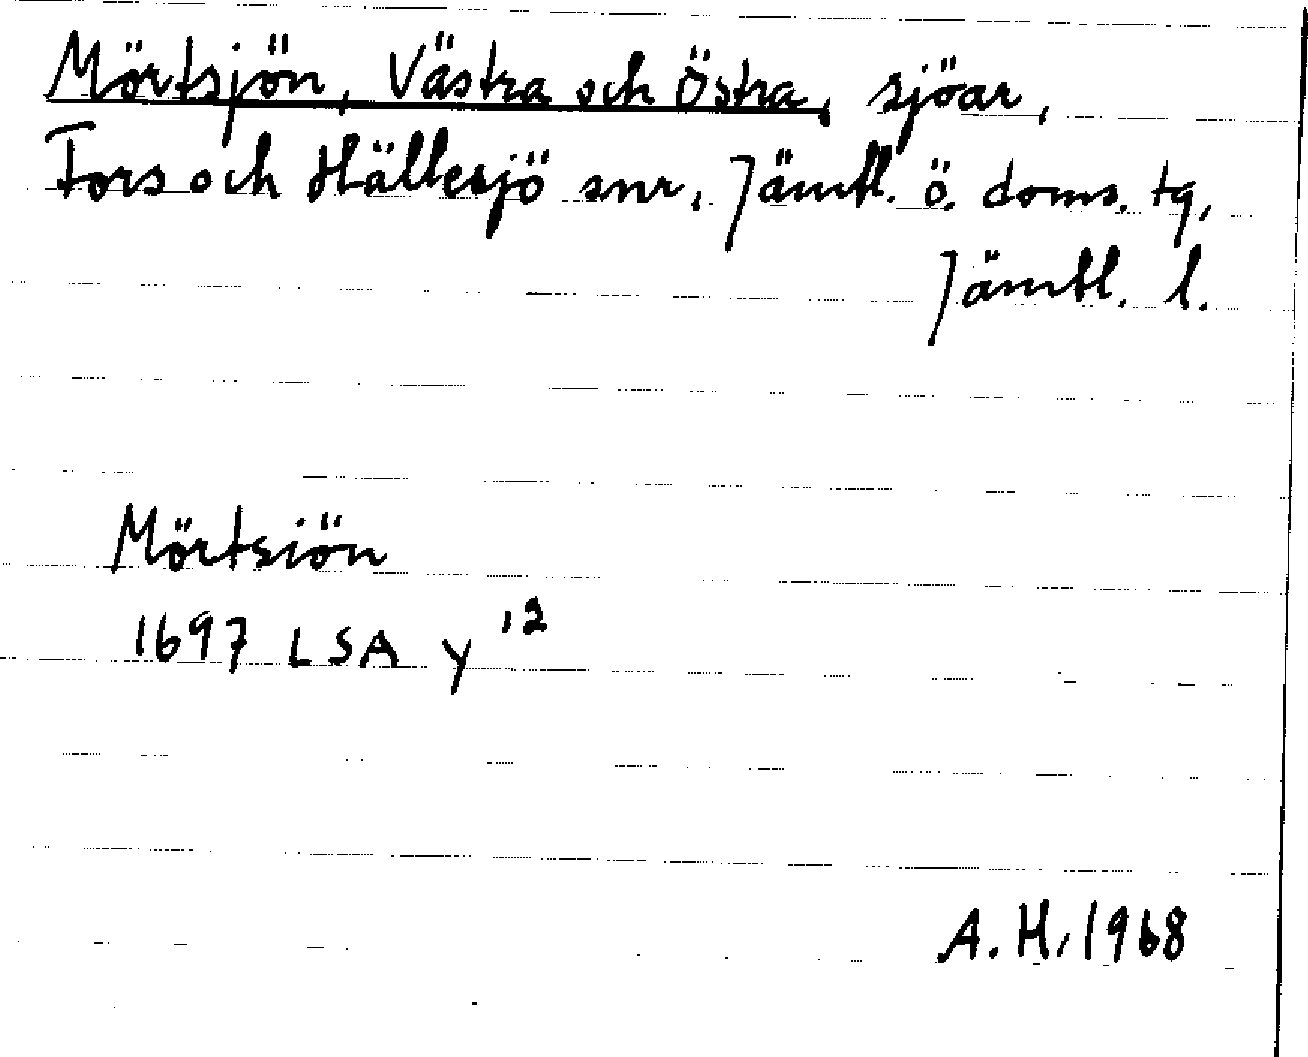 Mörtsjön, Västra och Östra, sjöar,
Fors och Hällesjö snr, Jämtl. ö. doms. tg,
Jämtl. l.
Mörtsiön
1697 LSA y 12
A.H. 1968